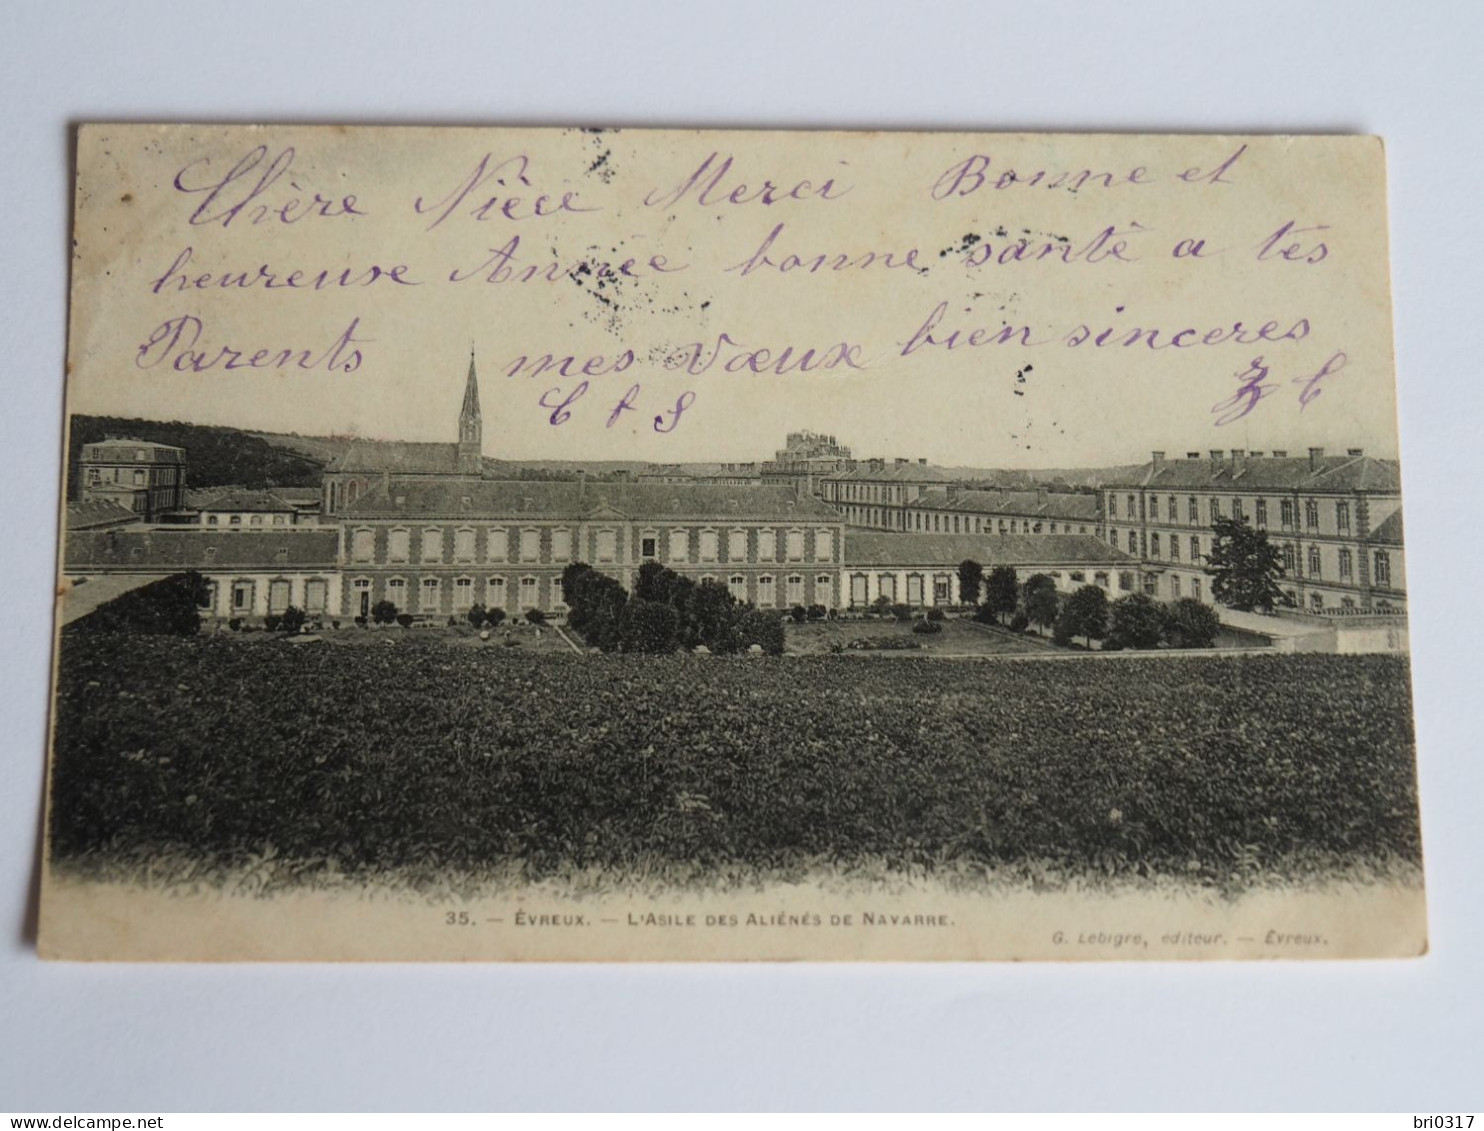 Chère Nièce Merci Bonne et
heureuse Année bonne santé a tes
Parents mes vœux bien sinceres
35. — ÉVREUX. — L'ASILE DES ALIÉNÉS DE NAVARRE.
G. Lebigre, éditeur. — Évreux.
delcampe.net
bri0317